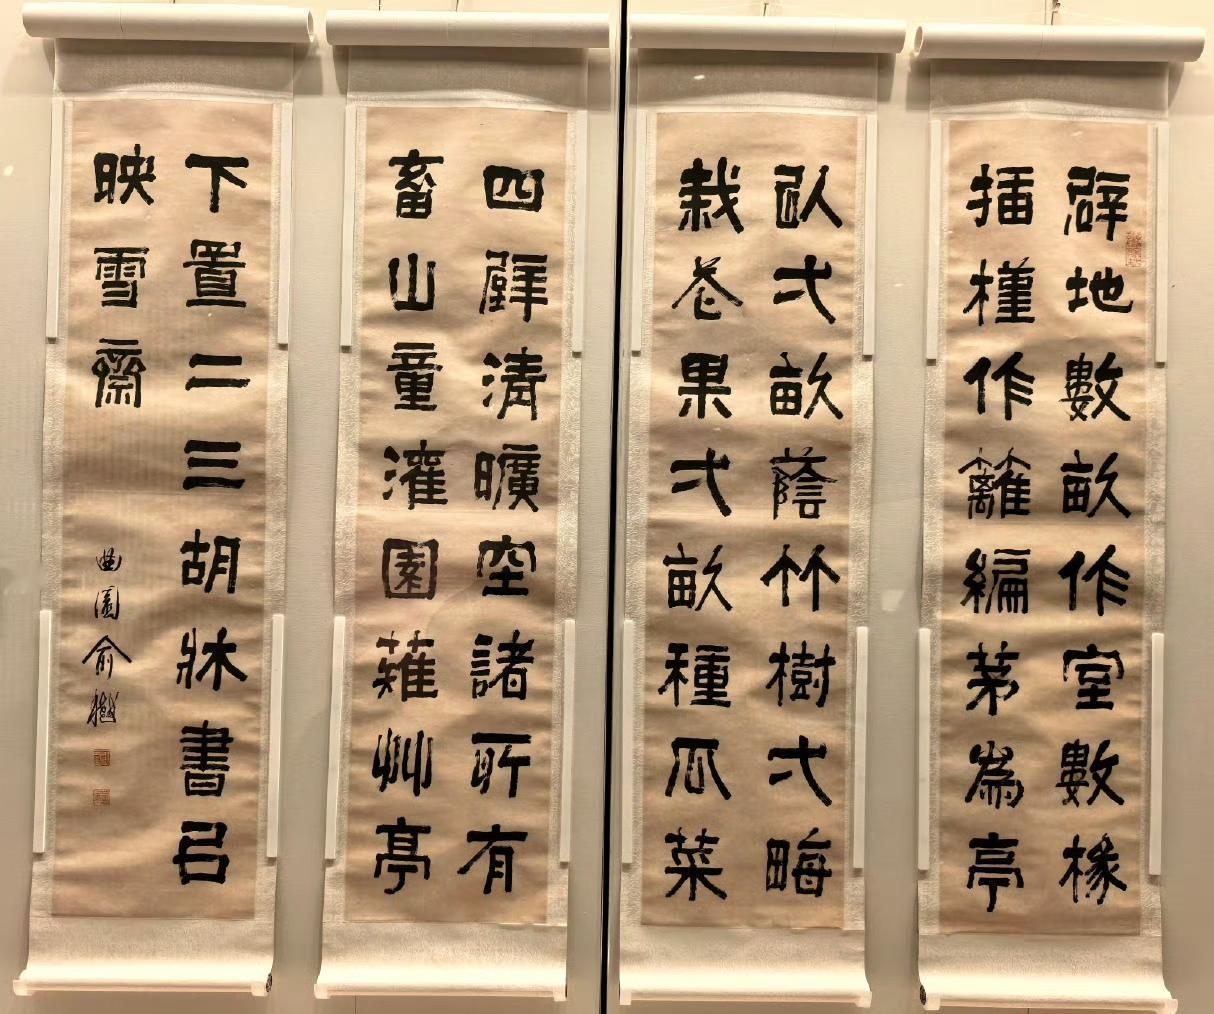 辟地數畝作室數椽
插槿作籬編茅為亭
以弌畝蔭竹樹弌畮
栽花果弌畝種瓜菜
四壁清曠空諸所有
畜山童灌園薙艸亭
下置二三胡牀書㠯
映雪齋
曲園俞樾